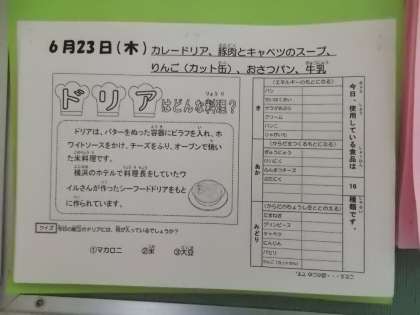 6月23日(木) カレードリア、豚肉とキャベツのスープ、
りんご(カット缶)、おさつパン、牛乳
ドリア はどんな料理?
ドリアは、バターをぬった容器にピラフを入れ、ホ
ワイトソースをかけ、チーズをふり、オーブンで焼い
た米料理です。
横浜のホテルで料理長をしていたワ
イルさんが作ったシーフードドリアをもと
に作られています。
クイズ 今日の給食のドリアには、何が入っているでしょうか?
①マカロニ ②米 ③大豆
今日、使用している食品は
16
種類です。
き
(エネルギーのもとになる)
パン
さつまいも
クリーム
パンこ
じゃがいも
あか
(からだをつくるもとになる)
ぎゅうにゅう
ぶたにく
みどり
(からだのちょうしをととのえる)
たまねぎ
グリンピース
キャベツ
にんじん
パセリ
りんご(カットかん)